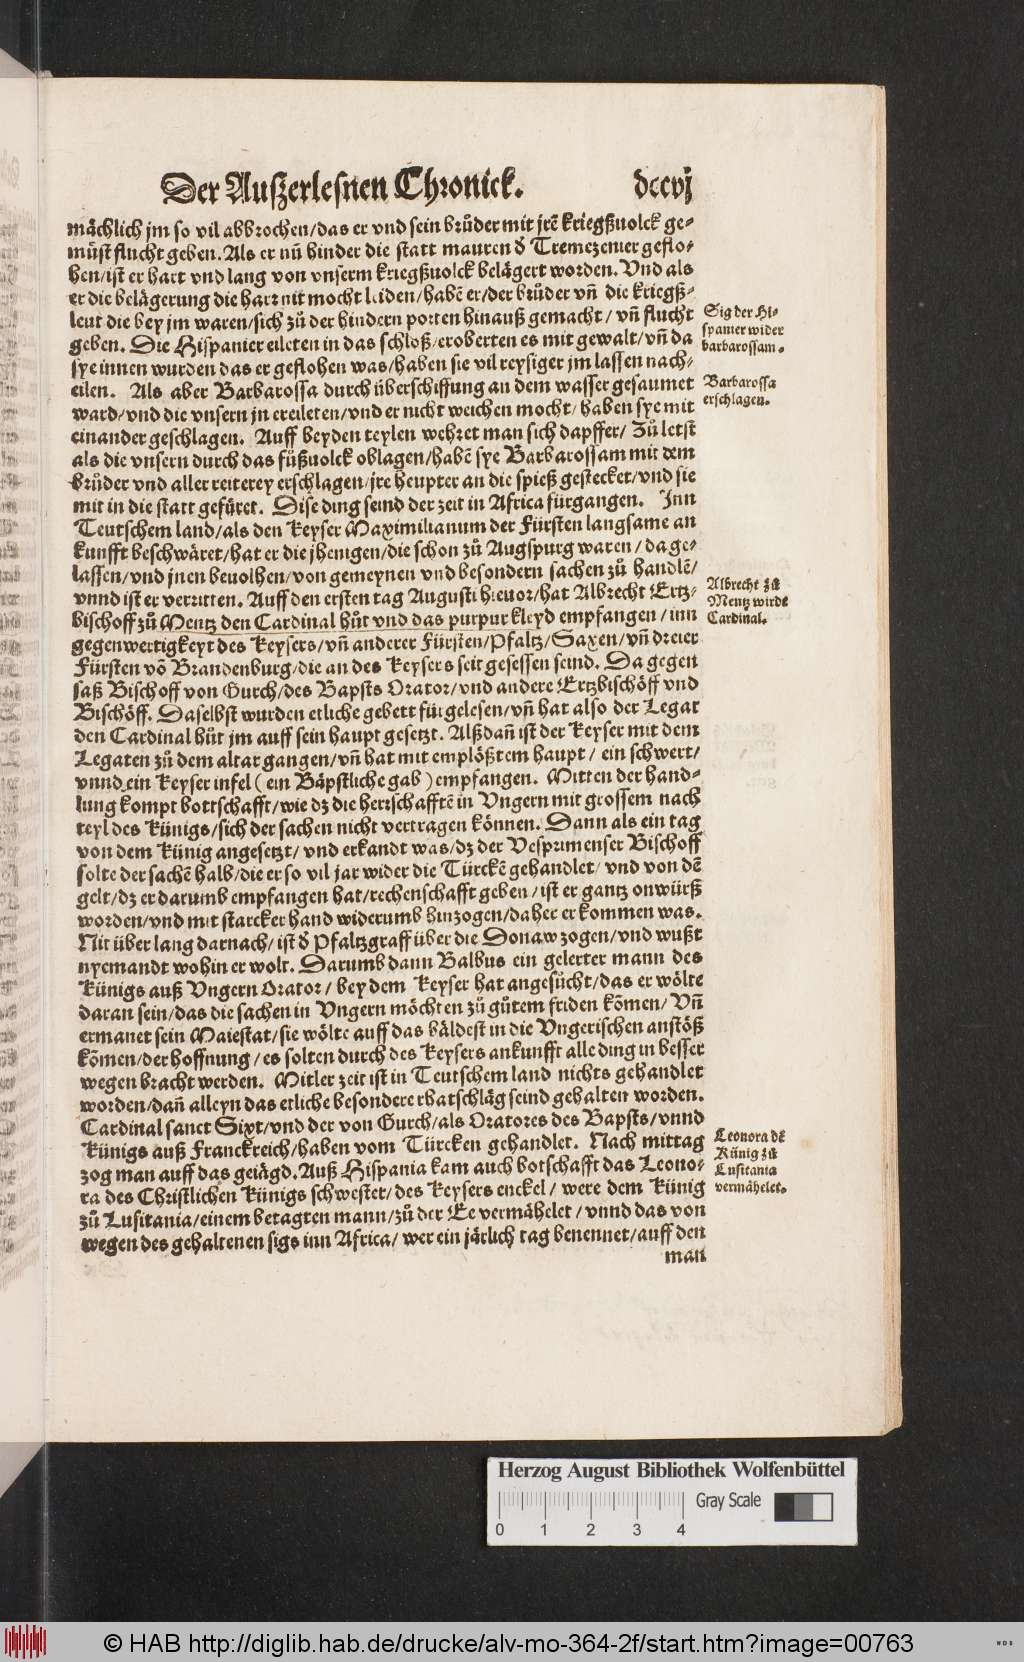 Der Außerlesnen Chronick. dccvj
mächlich jm so vil abbrochen/das er vnd sein brůder mit jrẽ kriegßuolck ge-
můst flucht geben. Als er nũ hinder die statt mauren d̕ Tremezenier geflo-
hen/ist er hart vnd lang von vnserm kriegßuolck belägert worden. Vnd als
er die belägerung die harr nit mocht leiden/habẽ er/der brůder vñ die kriegß-
leut die bey jm waren/sich zů der hindern porten hinauß gemacht/ vñ flucht
geben. Die Hispanier eileten in das schloß/eroberten es mit gewalt/vñ da
sye innen wurden das er geflohen was/haben sie vil reysiger jm lassen nach-
eilen. Als aber Barbarossa durch überschiffung an dem wasser gesaumet
ward/vnd die vnsern jn ereileten/vnd er nicht weichen mocht/ haben sye mit
einander geschlagen. Auff beyden teylen wehret man sich dapffer/ Zů letst
als die vnsern durch das fůßuolck oblagen/habẽ sye Barbarossam mit dem
brůder vnd aller reiterey erschlagen/jre heupter an die spieß gestecket/vnd sie
mit in die statt gefüret. Dise ding seind der zeit in Africa fürgangen. Inn
Teutschem land/als den Keyser Maximilianum der Fürsten langsame an
kunfft beschwäret/hat er die jhenigen/die schon zů Augspurg waren/ da ge-
lassen/vnd jnen beuolhen/von gemeynen vnd besondern sachen zů handlẽ/
vnnd ist er verritten. Auff den ersten tag Augusti hieuor/hat Albrecht Ertz-
bischoff zů Mentz den Cardinal hůt vnd das purpur kleyd empfangen/ inn
gegenwertigkeyt des Keysers/vñ anderer Fürsten/Pfaltz/Saxen/vñ dreier
Fürsten võ Brandenburg/die an des Keysers seit gesessen seind. Da gegen
saß Bischoff von Gurch/des Bapsts Orator/vnd andere Ertzbischöff vnd
Bischöff. Daselbst wurden etliche gebett fürgelesen/vñ hat also der Legat
den Cardinal hůt jm auff sein haupt gesetzt. Alßdañ ist der Keyser mit dem
Legaten zů dem altar gangen/vñ hat mit emplößtem haupt/ ein schwert/
vnnd ein Keyser infel ( ein Bäpstliche gab ) empfangen. Mitten der hand-
lung kompt bottschafft/wie dz die herrschafftẽ in Vngern mit grossem nach
teyl des Künigs/sich der sachen nicht vertragen können. Dann als ein tag
von dem Künig angesetzt/ vnd erkandt was/dz der Vesprimenser Bischoff
solte der sachẽ halb/die er so vil jar wider die Türckẽ gehandlet/ vnd von dẽ
gelt/dz er darumb empfangen hat/rechenschafft geben/ ist er gantz onwürß
worden/vnd mit starcker hand widerumb hinzogen/daher er kommen was.
Nit über lang darnach/ ist d̕ Pfaltzgraff über die Donaw zogen/vnd wußt
nyemandt wohin er wolt. Darumb dann Balbus ein gelerter mann des
Künigs auß Vngern Orator/ bey dem Keyser hat angesůcht/das er wölte
daran sein/das die sachen in Vngern möchten zů gůtem friden kõmen/ Vñ
ermanet sein Maiestat/sie wölte auff das bäldest in die Vngerischen anstöß
kõmen/der hoffnung/es solten durch des Keysers ankunfft alle ding in besser
wegen bracht werden. Mitler zeit ist in Teutschem land nichts gehandlet
worden/dañ alleyn das etliche besondere rhatschläg seind gehalten worden.
Cardinal sanct Sixt/vnd der von Gurch/als Oratores des Bapsts/vnnd
Künigs auß Franckreich/haben vom Türcken gehandlet. Nach mittag
zog man auff das geiägd. Auß Hispania kam auch botschafft das Leono-
ra des Christlichen Künigs schwester/des Keysers enckel/ were dem Künig
zů Lusitania/einem betagten mann/zů der Ee vermähelet/ vnnd das von
wegen des gehaltenen sigs inn Africa/ wer ein järlich tag benennet/auff den
man
Sig der Hi-
spanier wider
barbarossam.
Barbarossa
erschlagen.
Albrecht zů
Mentz wirdt
Cardinal.
Leonora dẽ
Künig zů
Lusitania
vermähelet.
Herzog August Bibliothek Wolfenbüttel
Gray Scale
0 1 2 3 4
© HAB http://diglib.hab.de/drucke/alv-mo-364-2f/start.htm?image=00763